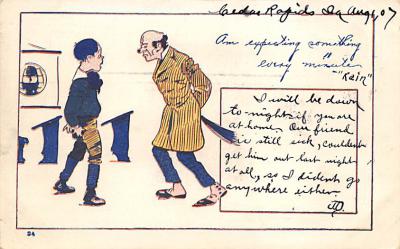 Cedar Rapids Ia Aug 1, 07
Am expecting something
every minute
"Rain"
I will be down
to-night if you are
at home. Our friend
is still sick, couldent
get him out last night
at all, so I dident go
anywhere either
34